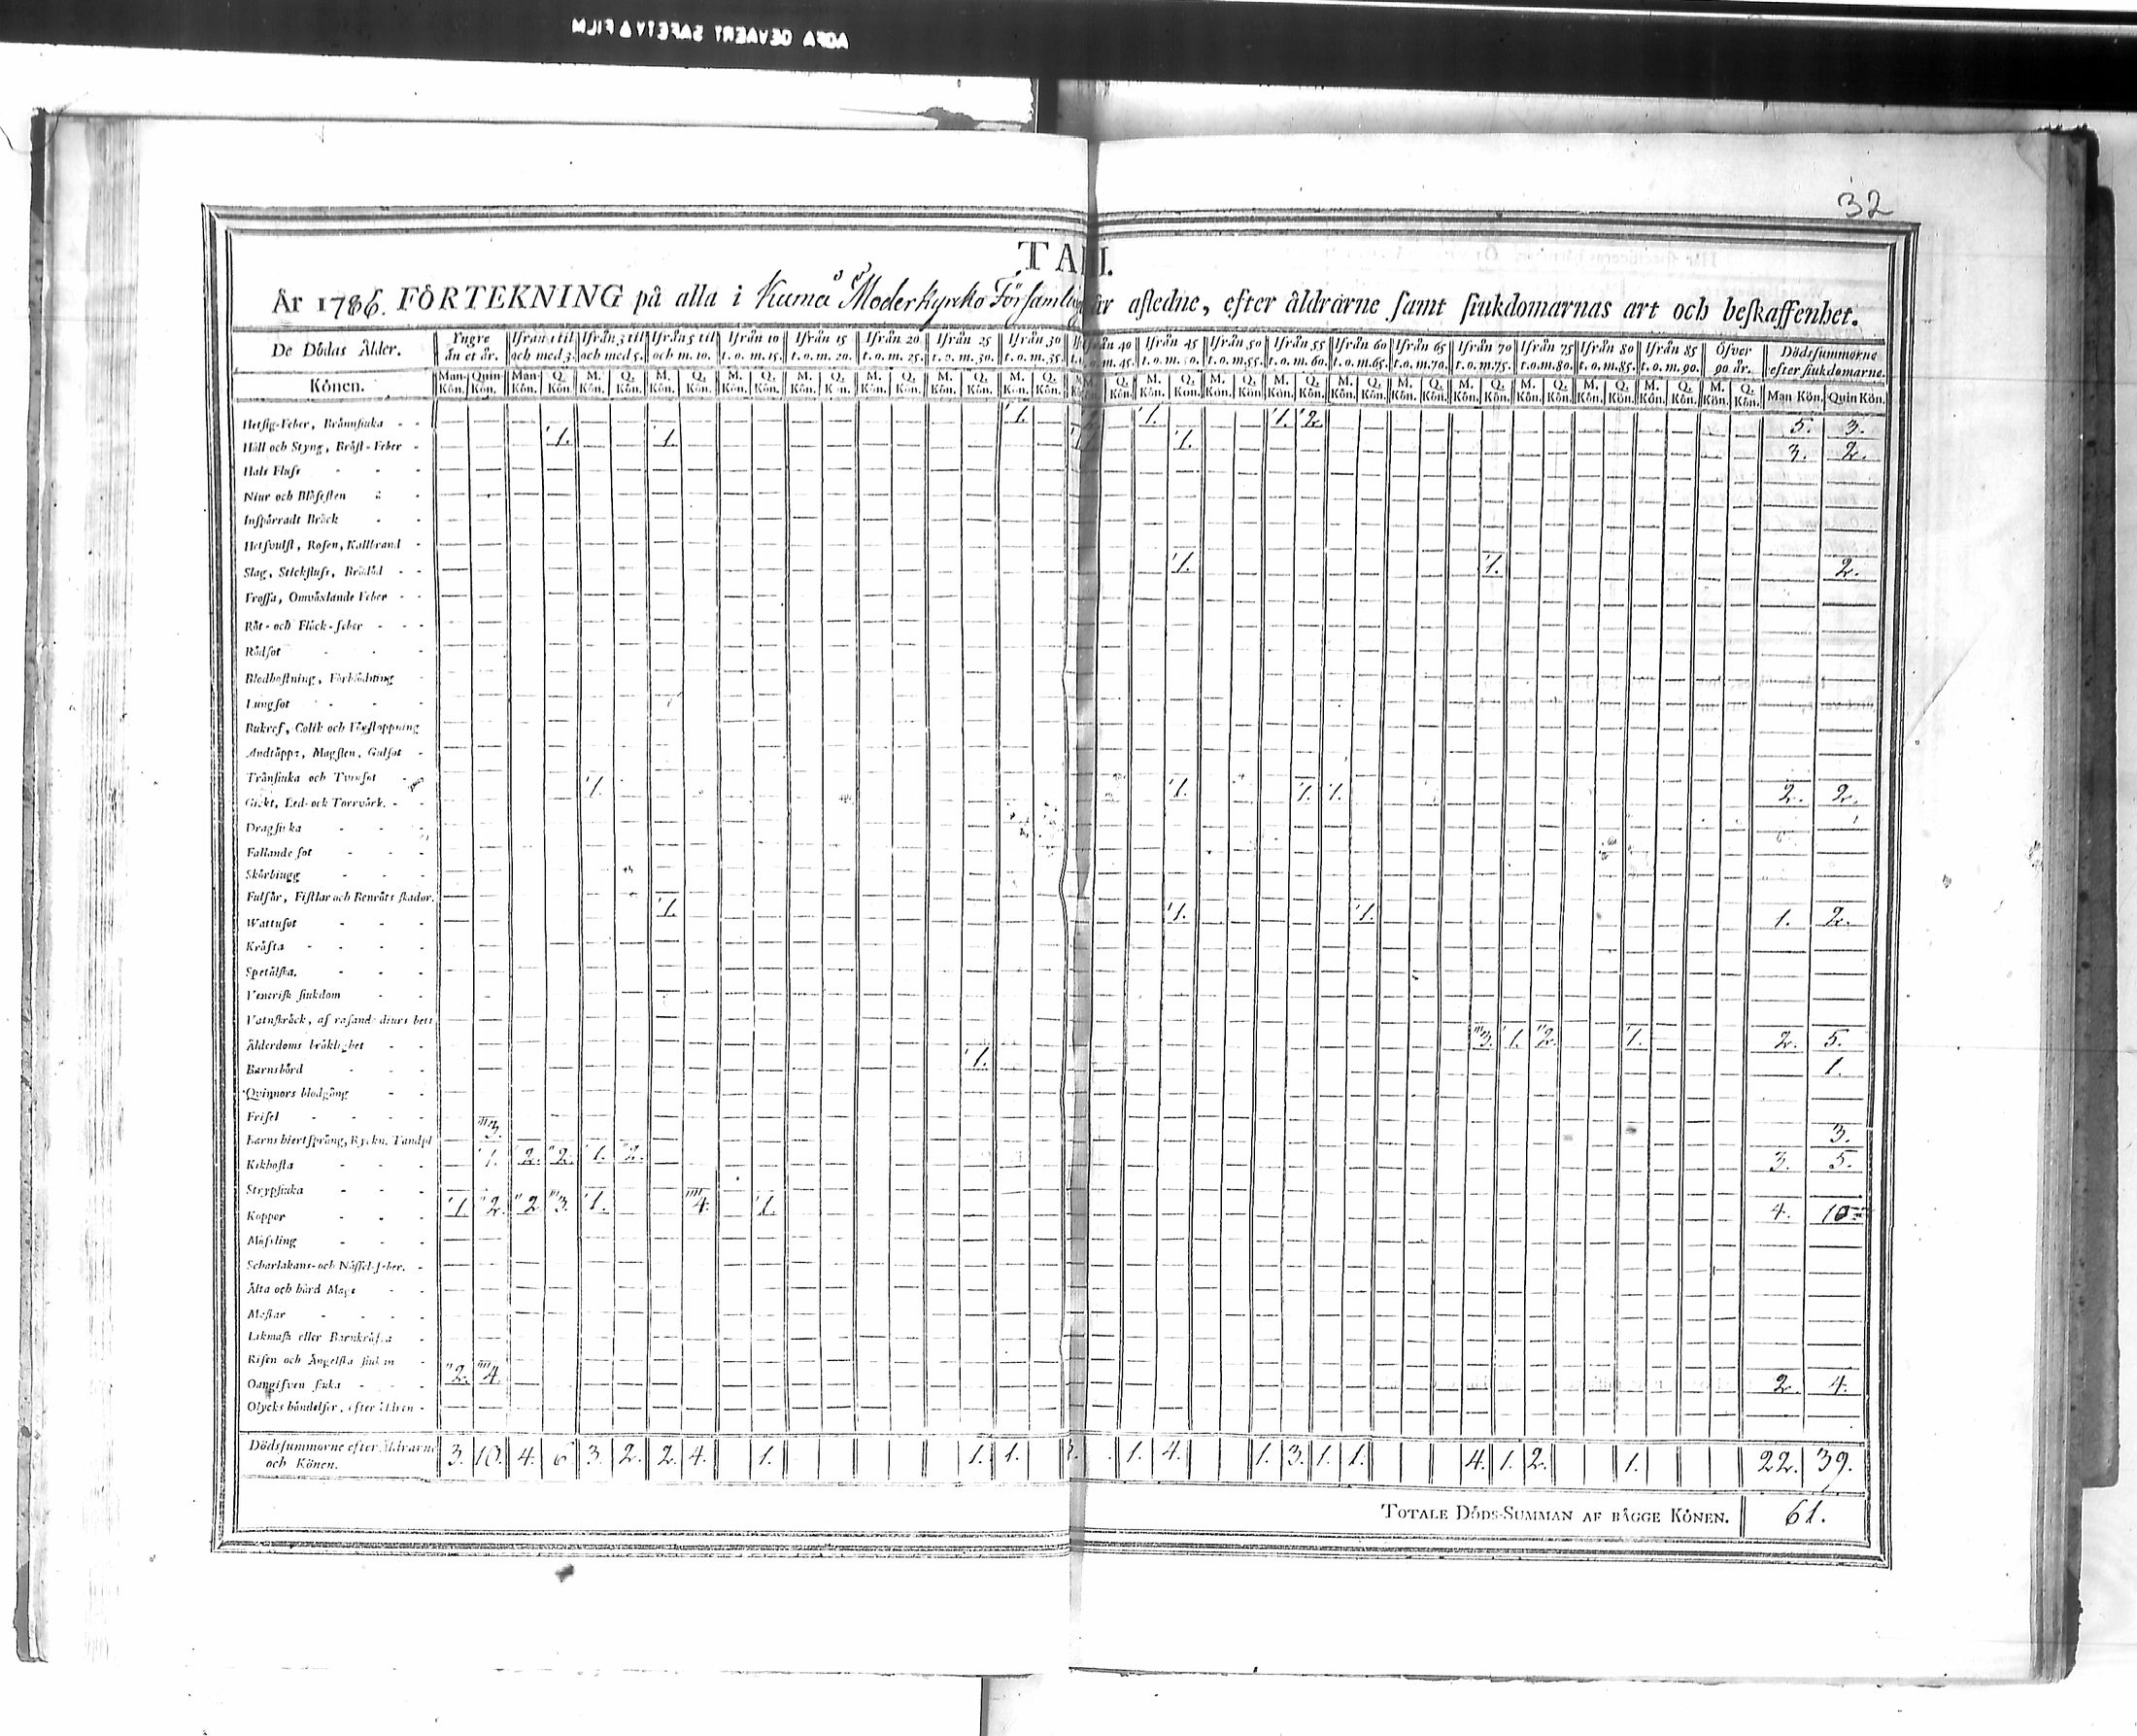 AGFA GEVAERT SAFETY FILM
32
TAB.
År 1786. FÖRTEKNING på alla i Kumå Moderkyrko Församling år afledne, efter åldrarne samt siukdomarnas art och beskaffenhet.
De Dödas Ålder. Yngre än et år. Ifrån 1 til och med 3. Ifrån 3 til och med 5. Ifrån 5 til och m. 10. Ifrån 10 t. o. m. 15. Ifrån 15 t. o. m. 20. Ifrån 20 t. o. m. 25. Ifrån 25 t. o. m. 30. Ifrån 30 t. o. m. 35. Ifrån 40 t. o. m. 45. Ifrån 45 t. o. m. 50. Ifrån 50 t. o. m. 55. Ifrån 55 t. o. m. 60. Ifrån 60 t. o. m. 65. Ifrån 65 t. o. m. 70. Ifrån 70 t. o. m. 75. Ifrån 75 t. o. m. 80. Ifrån 80 t. o. m. 85. Ifrån 85 t. o. m. 90. Öfver 90 år. Dödssummorne efter siukdomarne.
Könen. Man-Kön. Quin-Kön. Man Kön. Q. Kön. M. Kön. Q. Kön. M. Kön. Q. Kön. M. Kön. Q. Kön. M. Kön. Q. Kön. M. Kön. Q. Kön. M. Kön. Q. Kön. M. Kön. Q. Kön. Q. Kön. M. Kön. Q. Kön. M. Kön. Q. Kön. M. Kön. Q. Kön. M. Kön. Q. Kön. M. Kön. Q. Kön. M. Kön. Q. Kön. M. Kön. Q. Kön. M. Kön. Q. Kön. M. Kön. Q. Kön. M. Kön. Q. Kön. Man Kön. Quin Kön.
Hetsig-Feber, Brännsiuka 1. 1. 1. 2. 5. 3.
Håll och Styng, Bröst-Feber 1. 1. 1. 3. 2.
Hals Fluss
Niur och Blåsesten
Inspärradt Bråck
Hetsvulst, Rosen, Kallbrand
Slag, Stickfluss, Brådöd 1. 1. 2.
Frossa, Omväxlande Feber
Röt- och Fläck-feber
Rödsot
Blodhostning, Förblödning
Lungsot
Bukref, Colik och Förstoppning
Andtäppa, Magsten, Gulsot
Trånsiuka och Tvinsot 1. 1. 1. 1. 2. 2.
Gickt, Led- och Torrvärk.
Dragsiuka
Fallande sot
Skörbiugg
Fulsår, Fistlar och Benröts skador.
Wattusot 1. 1. 1. 1. 2.
Kräfta
Spetälska.
Venerisk siukdom
Vatnskräck, af rasande diurs bett
Ålderdoms bräklighet 3. 1. 2. 1. 2. 5.
Barnsbörd 1. 1.
Quinnors blodgång
Frisel
Barns hiertsprång, Ryckn. Tandpl 3. 3.
Kikhosta 1. 2. 2. 1. 2. 3. 5.
Strypsiuka
Koppor 1. 2. 2 3. 1. 4. 1. 4. 10.
Mässling
Scharlakans- och Nässel-feber.
Älta och hård Mage
Maskar
Likmask eller Barnkräfta
Risen och Ängelska siukan
Oangifven siuka 2. 4. 2. 4.
Olycks händelser, efter Listen
Dödssummorne efter åldrarne och Könen. 3. 10. 4. 6 3. 2. 2. 4. 1. 1. 1. 1. 4. 1. 3. 1. 1. 4. 1. 2. 1. 22. 39.
TOTALE DÖDS-SUMMAN AF BÄGGE KÖNEN. 61.